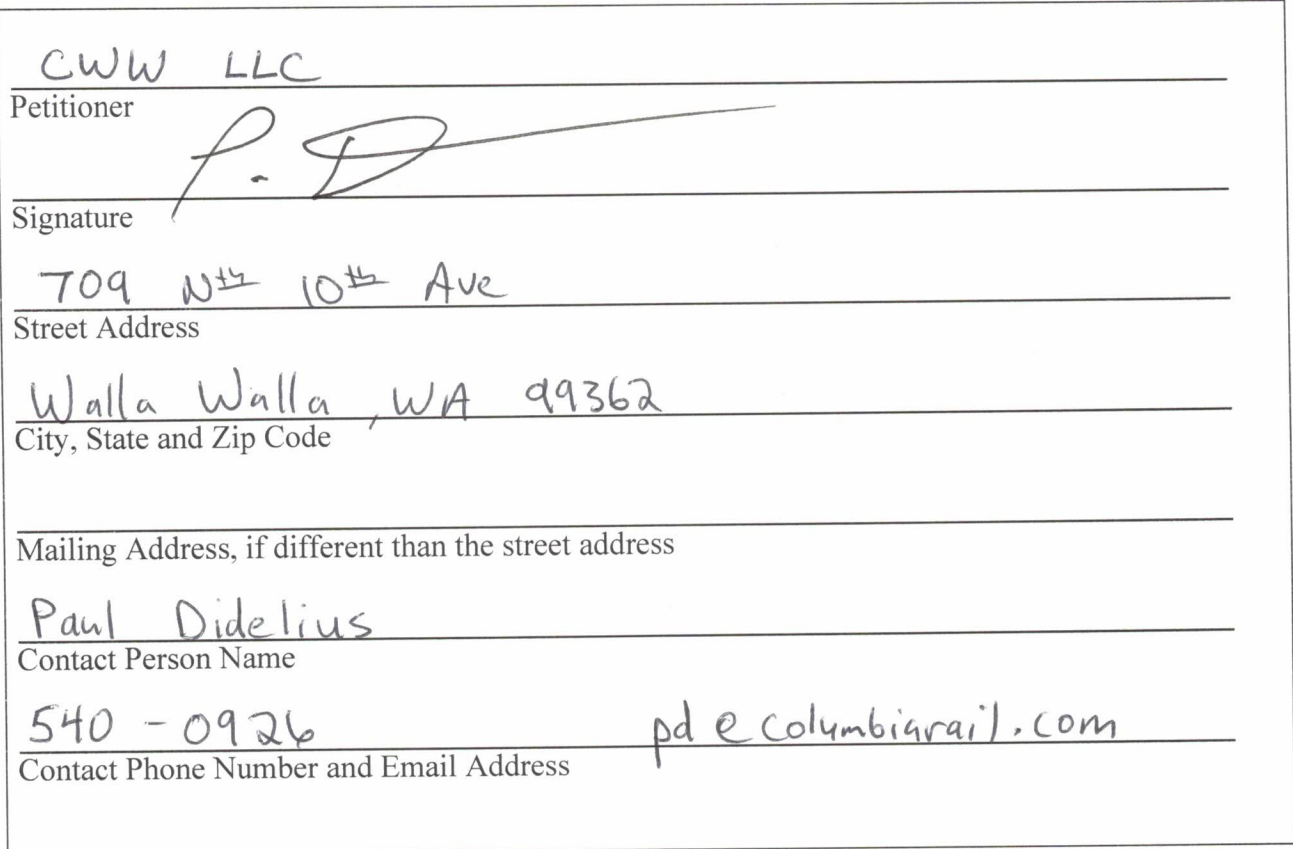 CWW LLC
Petitioner
P. D
Signature
709 Nth 10th Ave
Street Address
Walla Walla, WA 99362
City, State and Zip Code
Mailing Address, if different than the street address
Paul Didelius
Contact Person Name
540-0926 pd@columbiarail.com
Contact Phone Number and Email Address